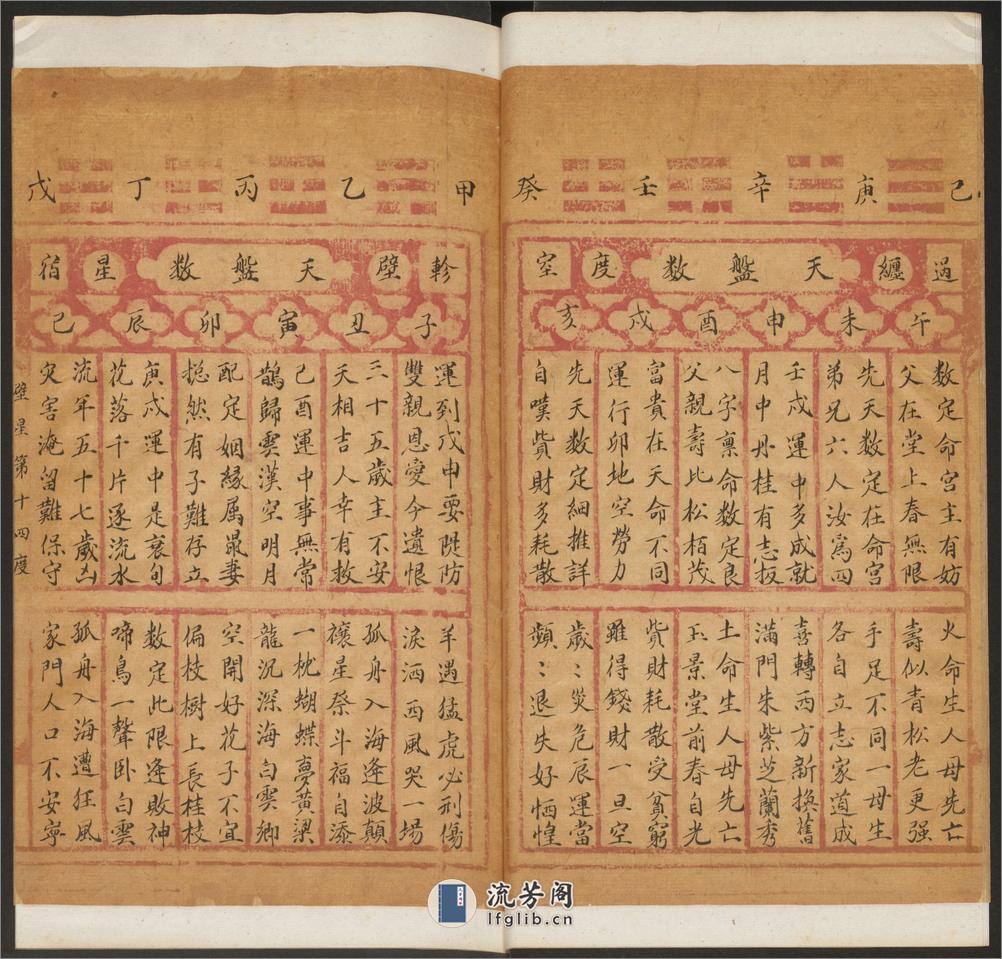 己庚辛壬癸
過纏天盤数度空
午未申酉戌亥
数定命宮主有妨
父在堂上春無限
先天数定在命宮
弟兄六人汝為四
壬戌運中多成就
月中丹桂有志扳
八字稟命数定良
父親壽比松栢茂
富貴在天命不同
運行卯地空勞力
先天数定細推詳
自嘆貲財多耗散
火命生人母先亡
壽似青松老更强
手足不同一母生
各自立志家道成
喜轉西方新換舊
滿門朱紫芝蘭秀
土命生人母先亡
玉景堂前春自光
貲財耗散受貧窮
雖得錢財一旦空
歲〻災危辰運當
頻〻退失好恓惶
甲乙丙丁戊
軫壁天盤数星宿
子丑寅卯辰巳
運到戊申要隄防
雙親恩愛今遺恨
三十五歲主不安
天相吉人幸有救
己酉運中事無常
鵲歸雲漢空明月
配定姻緣属最妻
捴然有子難存立
庚戌運中是衰旬
花落千片逐流水
流年五十七歲凶
灾害淹留難保守
羊遇猛虎必刑傷
淚洒西風哭一場
孤舟入海逢波顛
禳星祭斗福自添
一枕蝴蝶夢黃梁
龍沉深海白雲鄉
空開好花子不宜
偏枝樹上長桂枝
数定此限逢敗神
啼鳥一聲卧白雲
孤舟入海遭狂風
家門人口不安寧
壁星第十四度
流芳阁
lfglib.cn